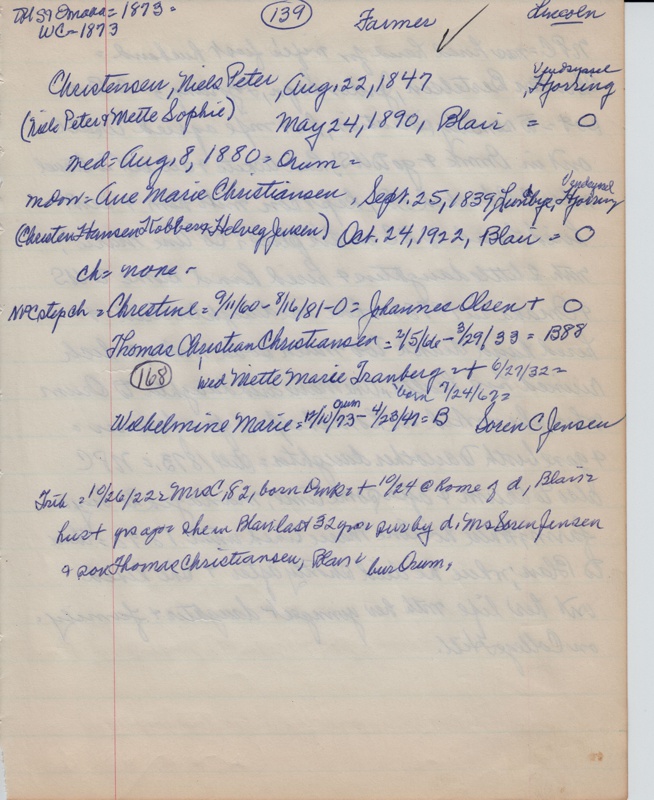 DK ST Omaha = 1873 =
WC = 1873
139
Farmer
Lincoln
Christensen, Niels Peter, Aug. 22, 1847, Vendsyssel Hjorring
(Niels Peter & Mette Sophie) May 24, 1890, Blair = O
med = Aug. 8, 1880 = Orum =
mdow = Ane Marie Christiansen, Sept. 25, 1839, Lundbye, Vendsyssel Hjorring
(Christen Hansen Kobberø & Helveg Jensen) Oct. 24, 1922, Blair = O
ch = none -
NPC step ch = Christine = 9/11/60 - 8/16/81 - O = Johannes Olsen + O
Thomas Christian Christiansen = 2/5/66 - 3/29/33 = B88
168 wed Mette Marie Tranberg = + 6/27/32 =
born 7/24/67 =
Wilhelmine Marie = 12/10/73 Orum - 4/23/47 = B Soren C Jensen
Trib = 10/26/22 = Mrs C, 82, born Dmk = + 10/24 @ home of d, Blair =
hus + yrs ago she in Blair last 32 yrs = sur by d, Mrs Soren Jensen
& son Thomas Christiansen, Blair = bur Orum,